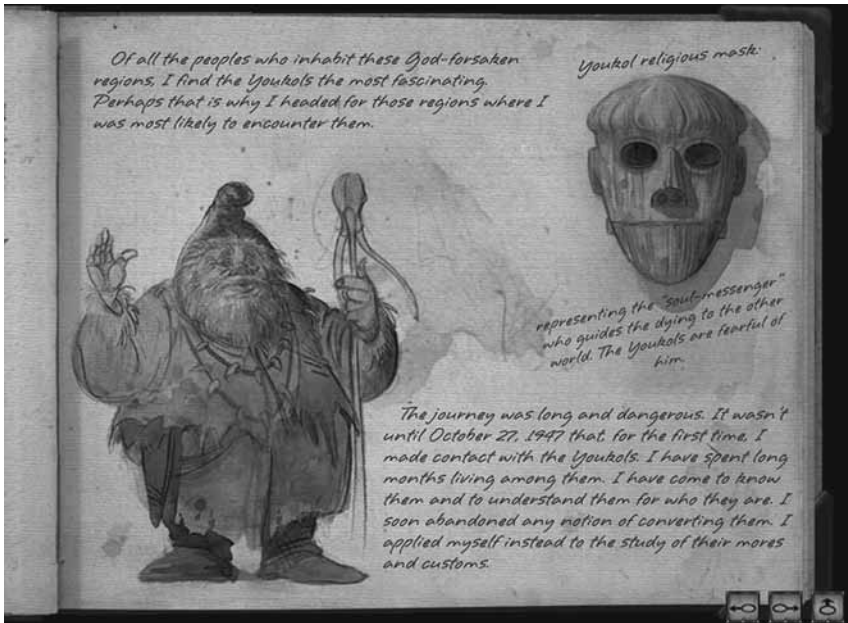 Of all the peoples who inhabit these God-forsaken
regions, I find the Youkols the most fascinating.
Perhaps that is why I headed for those regions where I
was most likely to encounter them.
Youkol religious mask:
representing the "soul-messenger"
who guides the dying to the other
world. The Youkols are fearful of
him.
The journey was long and dangerous. It wasn't
until October 27, 1947 that, for the first time, I
made contact with the Youkols. I have spent long
months living among them. I have come to know
them and to understand them for who they are. I
soon abandoned any notion of converting them. I
applied myself instead to the study of their mores
and customs.